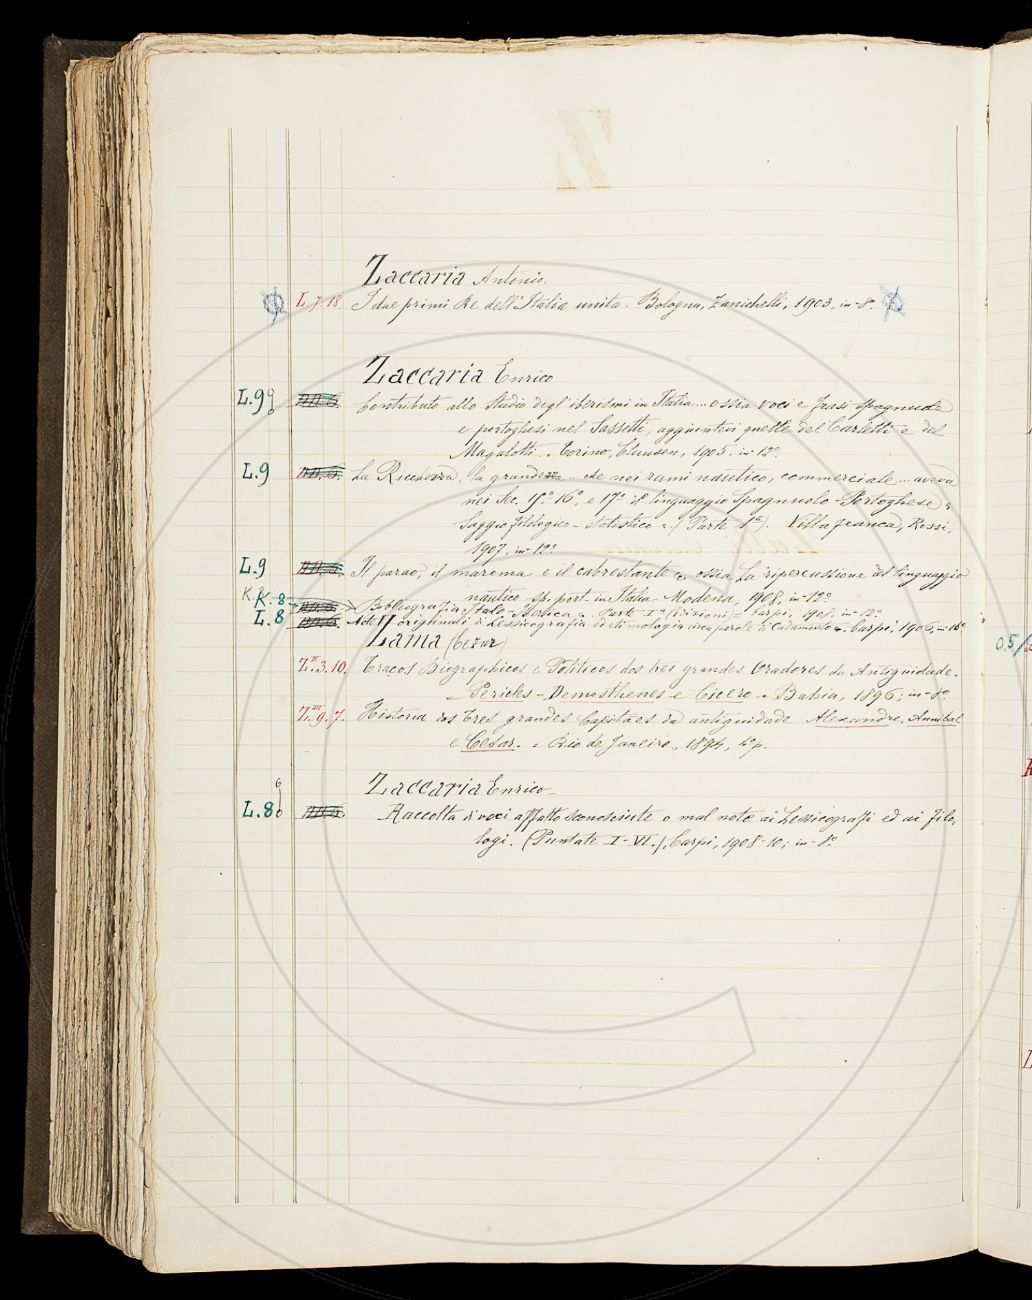 Z
Zaccaria Antonio.
L. 7. 18. I due primi Re dell'Italia unita. Bologna, Zanichelli, 1903, in-8º.
Zaccaria Enrico
L. 9 Contributo allo studio degl'iberismi in Italia... ossia voci e frasi spagnuole
e portoghesi nel Sassetti, aggiuntevi quelle del Carletti e del
Magalotti. - Torino, Clausen, 1905, in-12º.
L. 9 La Ricchezza, la grandezza... che nei rami nautico, commerciale... aveva
nei Sec. 15º 16º e 17º il linguaggio Spagnuolo-Portoghese =
Saggio filologico - (Parte 1ª). Villafranca, Rossi,
1907, in-12º
L. 9 Il parao, il maroma e il cabrestante = ossia La ripercussione del linguaggio
nautico sp. port. in Italia - Modena, 1908, in-12º
K. 8 K. 8 Bibliografia Italo-Iberica = Parte Iª = Carpi, 1908, in-12º.
L. 8 Note originali di Lessicografia ed etimologia circa parole di Cadamosto =. Carpi, 1906, in-16º
Zama (Cezar)
Z.II 3. 10. Traços Biographicos e Politicos dos tres grandes Oradores da Antiguidade.
- Pericles - Demosthenes e Cicero - Bahia, 1896; in-8º.
Z.III 9. 7. Historia dos tres grandes Capitães da antiguidade Alexandre, Annibal
e Cesar. = Rio de Janeiro, 1894,
Zaccaria Enrico
L. 8 Raccolta di voci affatto sconosciute o mal note ai Lessicografi ed ai filo-
logi. (Puntate I-VI.), Carpi, 1908-10; in-8º.
0.5